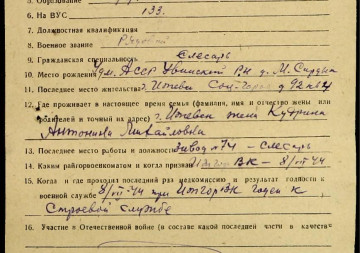 5. Образование
6. На ВУС 133.
7. Должностная квалификация
8. Военное звание Рядовой
9. Гражданская специальность Слесарь
10. Место рождения Удм. АССР Увинский РН д. М. Сирдяна
11. Последнее место жительства г. Ижевск Соц-город д 92 кв 4
12. Где проживает в настоящее время семья (фамилия, имя и отчество жены или
родителей и точный их адрес) г. Ижевск жена Кудрина
Антонина Михайловна
13. Последнее место работы и должность Завод №74 – слесарь
14. Каким райгорвоенкоматом и когда призван Ижгор ВК – 8/VII 44
15. Когда и где проходил последний раз медкомиссию и результат годности к
военной службе 8/VII-44 при Ижгор ВК годен к
строевой службе
16. Участие в Отечественной войне (в составе какой последней части в качестве